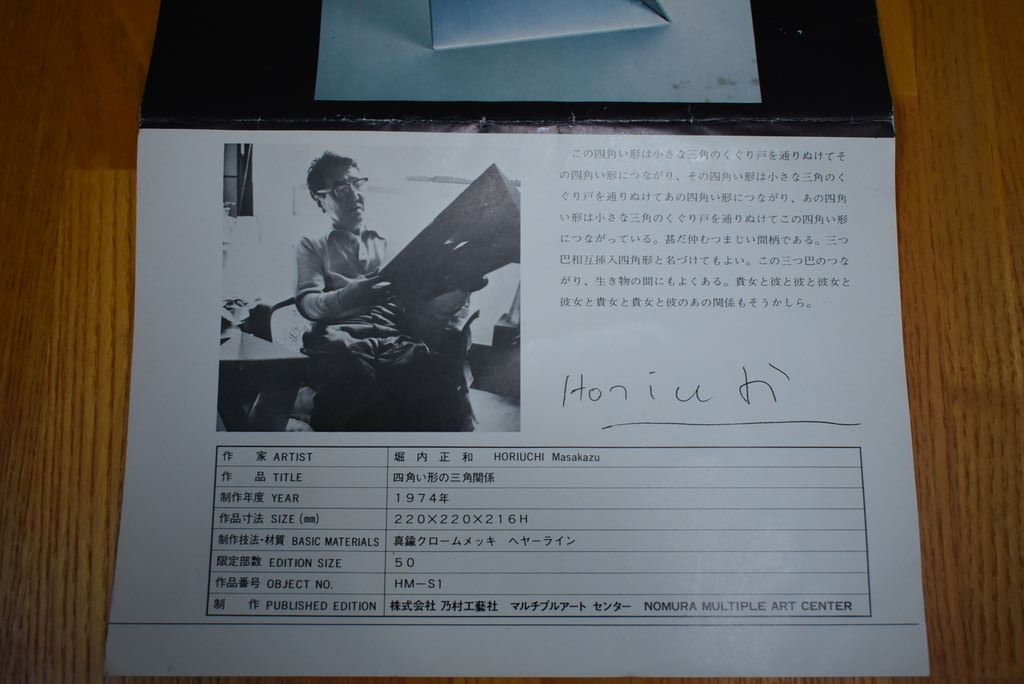 この四角い形は小さな三角のくぐり戸を通りぬけてそ
の四角い形につながり、その四角い形は小さな三角のく
ぐり戸を通りぬけてあの四角い形につながり、あの四角
い形は小さな三角のくぐり戸を通りぬけてこの四角い形
につながっている。甚だ仲むつまじい間柄である。三つ
巴相互挿入四角形と名づけてもよい。この三つ巴のつな
がり、生き物の間にもよくある。貴女と彼と彼と彼女と
彼女と貴女と貴女と彼のあの関係もそうかしら。
Horiuchi
作 家 ARTIST 堀 内 正 和 HORIUCHI Masakazu
作 品 TITLE 四角い形の三角関係
制作年度 YEAR 1974年
作品寸法 SIZE (㎜) 220×220×216H
制作技法・材質 BASIC MATERIALS 真鍮クロームメッキ ヘヤーライン
限定部数 EDITION SIZE 50
作品番号 OBJECT NO. HM－S1
制 作 PUBLISHED EDITION 株式会社 乃村工藝社 マルチプルアート センター NOMURA MULTIPLE ART CENTER